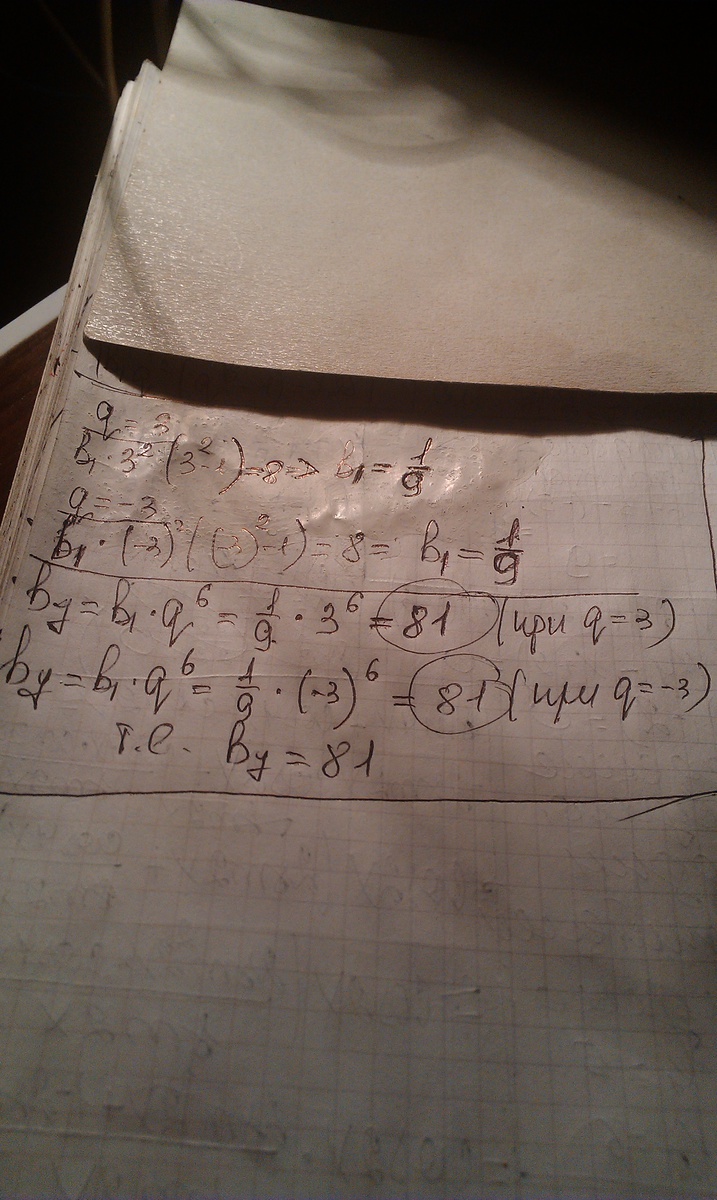 q = 3
b₁ · 3² (3²-1) = 8 => b₁ = 1/9
q = -3
b₁ · (-3)² ((-3)²-1) = 8 = b₁ = 1/9
b₇ = b₁ · q⁶ = 1/9 · 3⁶ = 81 (при q = 3)
b₇ = b₁ · q⁶ = 1/9 · (-3)⁶ = 81 (при q = -3)
т.е. b₇ = 81